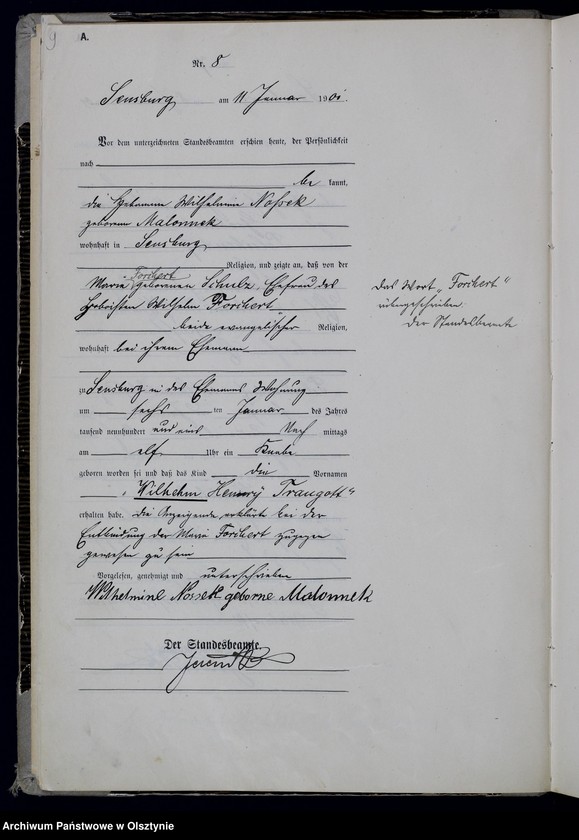 9
A.
Nr. 8
Sensburg am 11 Januar 1901.
Vor dem unterzeichneten Standesbeamten erschien heute, der Persönlichkeit
nach
be kannt,
die Hebamme Wilhelmine Nossek
geborene Malonnek
wohnhaft in Sensburg
Religion, und zeigte an, daß von der
Forchert
Maria geborenen Schulz, Ehefrau des
Wilhelm Forchert
beide evangelischer Religion,
wohnhaft bei ihrem Ehemann
zu Sensburg in des Ehemanns Wohnung
um sechs ten Januar des Jahres
tausend neunhundert und eins Nach mittags
am elf Uhr ein Knabe
geboren worden sei und daß das Kind die Vornamen
„Wilhelm Henry Traugott“
erhalten habe. Die Anzeigende erklärte bei der
Entbindung der Maria Forchert zugegen
gewesen zu sein
Vorgelesen, genehmigt und unterschrieben
Wilhelmine Nossek geborne Malonnek
Der Standesbeamte.
das Wort „Forchert“
übergeschrieben
Der Standesbeamte
Archiwum Państwowe w Olsztynie